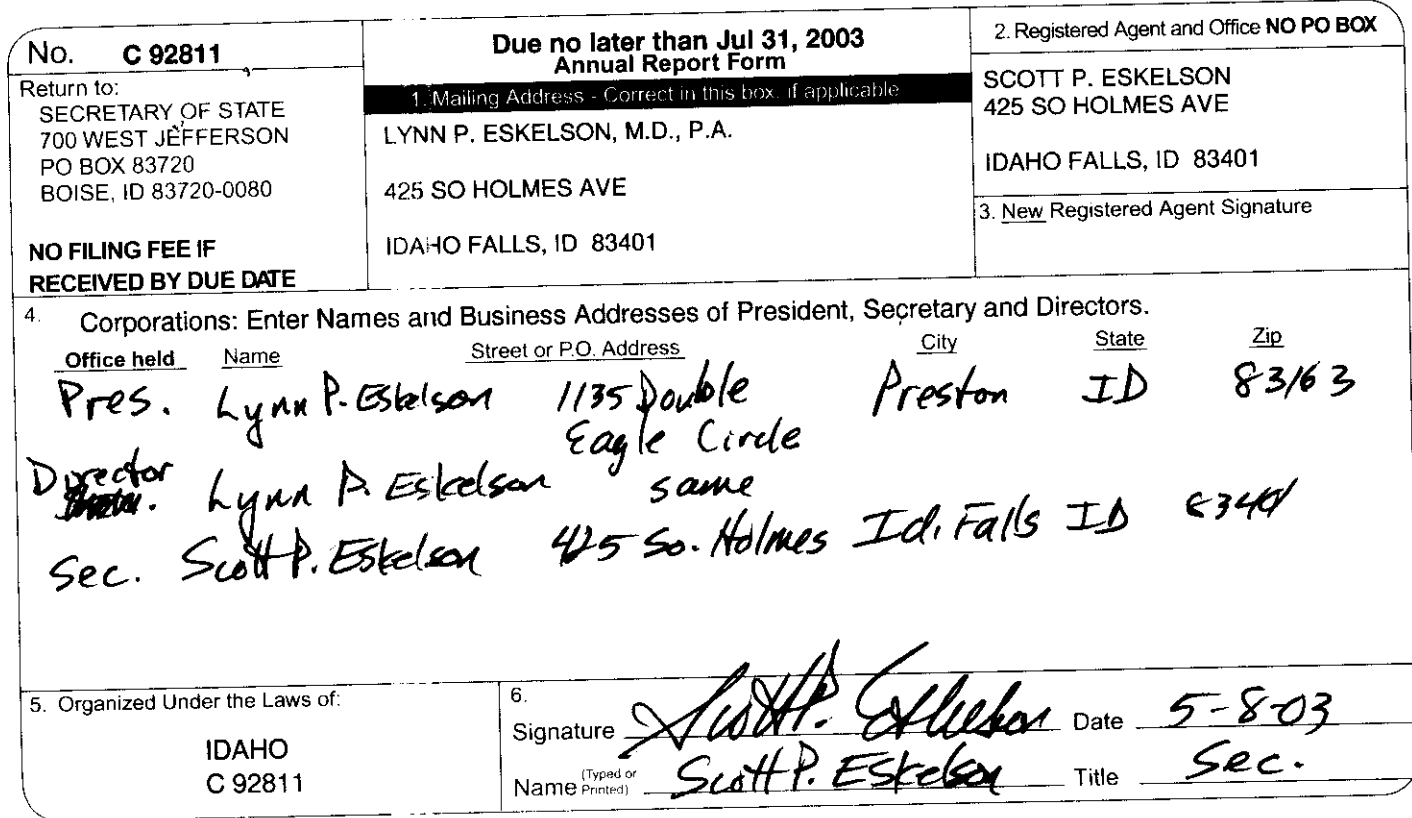 No. C 92811
Return to:
SECRETARY OF STATE
700 WEST JEFFERSON
PO BOX 83720
BOISE, ID 83720-0080
NO FILING FEE IF
RECEIVED BY DUE DATE
Due no later than Jul 31, 2003
Annual Report Form
1. Mailing Address - Correct in this box, if applicable
LYNN P. ESKELSON, M.D., P.A.
425 SO HOLMES AVE
IDAHO FALLS, ID 83401
2. Registered Agent and Office NO PO BOX
SCOTT P. ESKELSON
425 SO HOLMES AVE
IDAHO FALLS, ID 83401
3. New Registered Agent Signature
4. Corporations: Enter Names and Business Addresses of President, Secretary and Directors.
Office held Name Street or P.O. Address City State Zip
Pres. Lynn P. Eskelson 1135 Double Preston ID 83163
Eagle Circle
Director Lynn P. Eskelson same
Sec. Scott P. Eskelson 425 So. Holmes Id. Falls ID
5. Organized Under the Laws of:
IDAHO
C 92811
6.
Signature Scott P. Eskelson Date 5-8-03
Name (Typed or Printed) Scott P. Eskelson Title Sec.